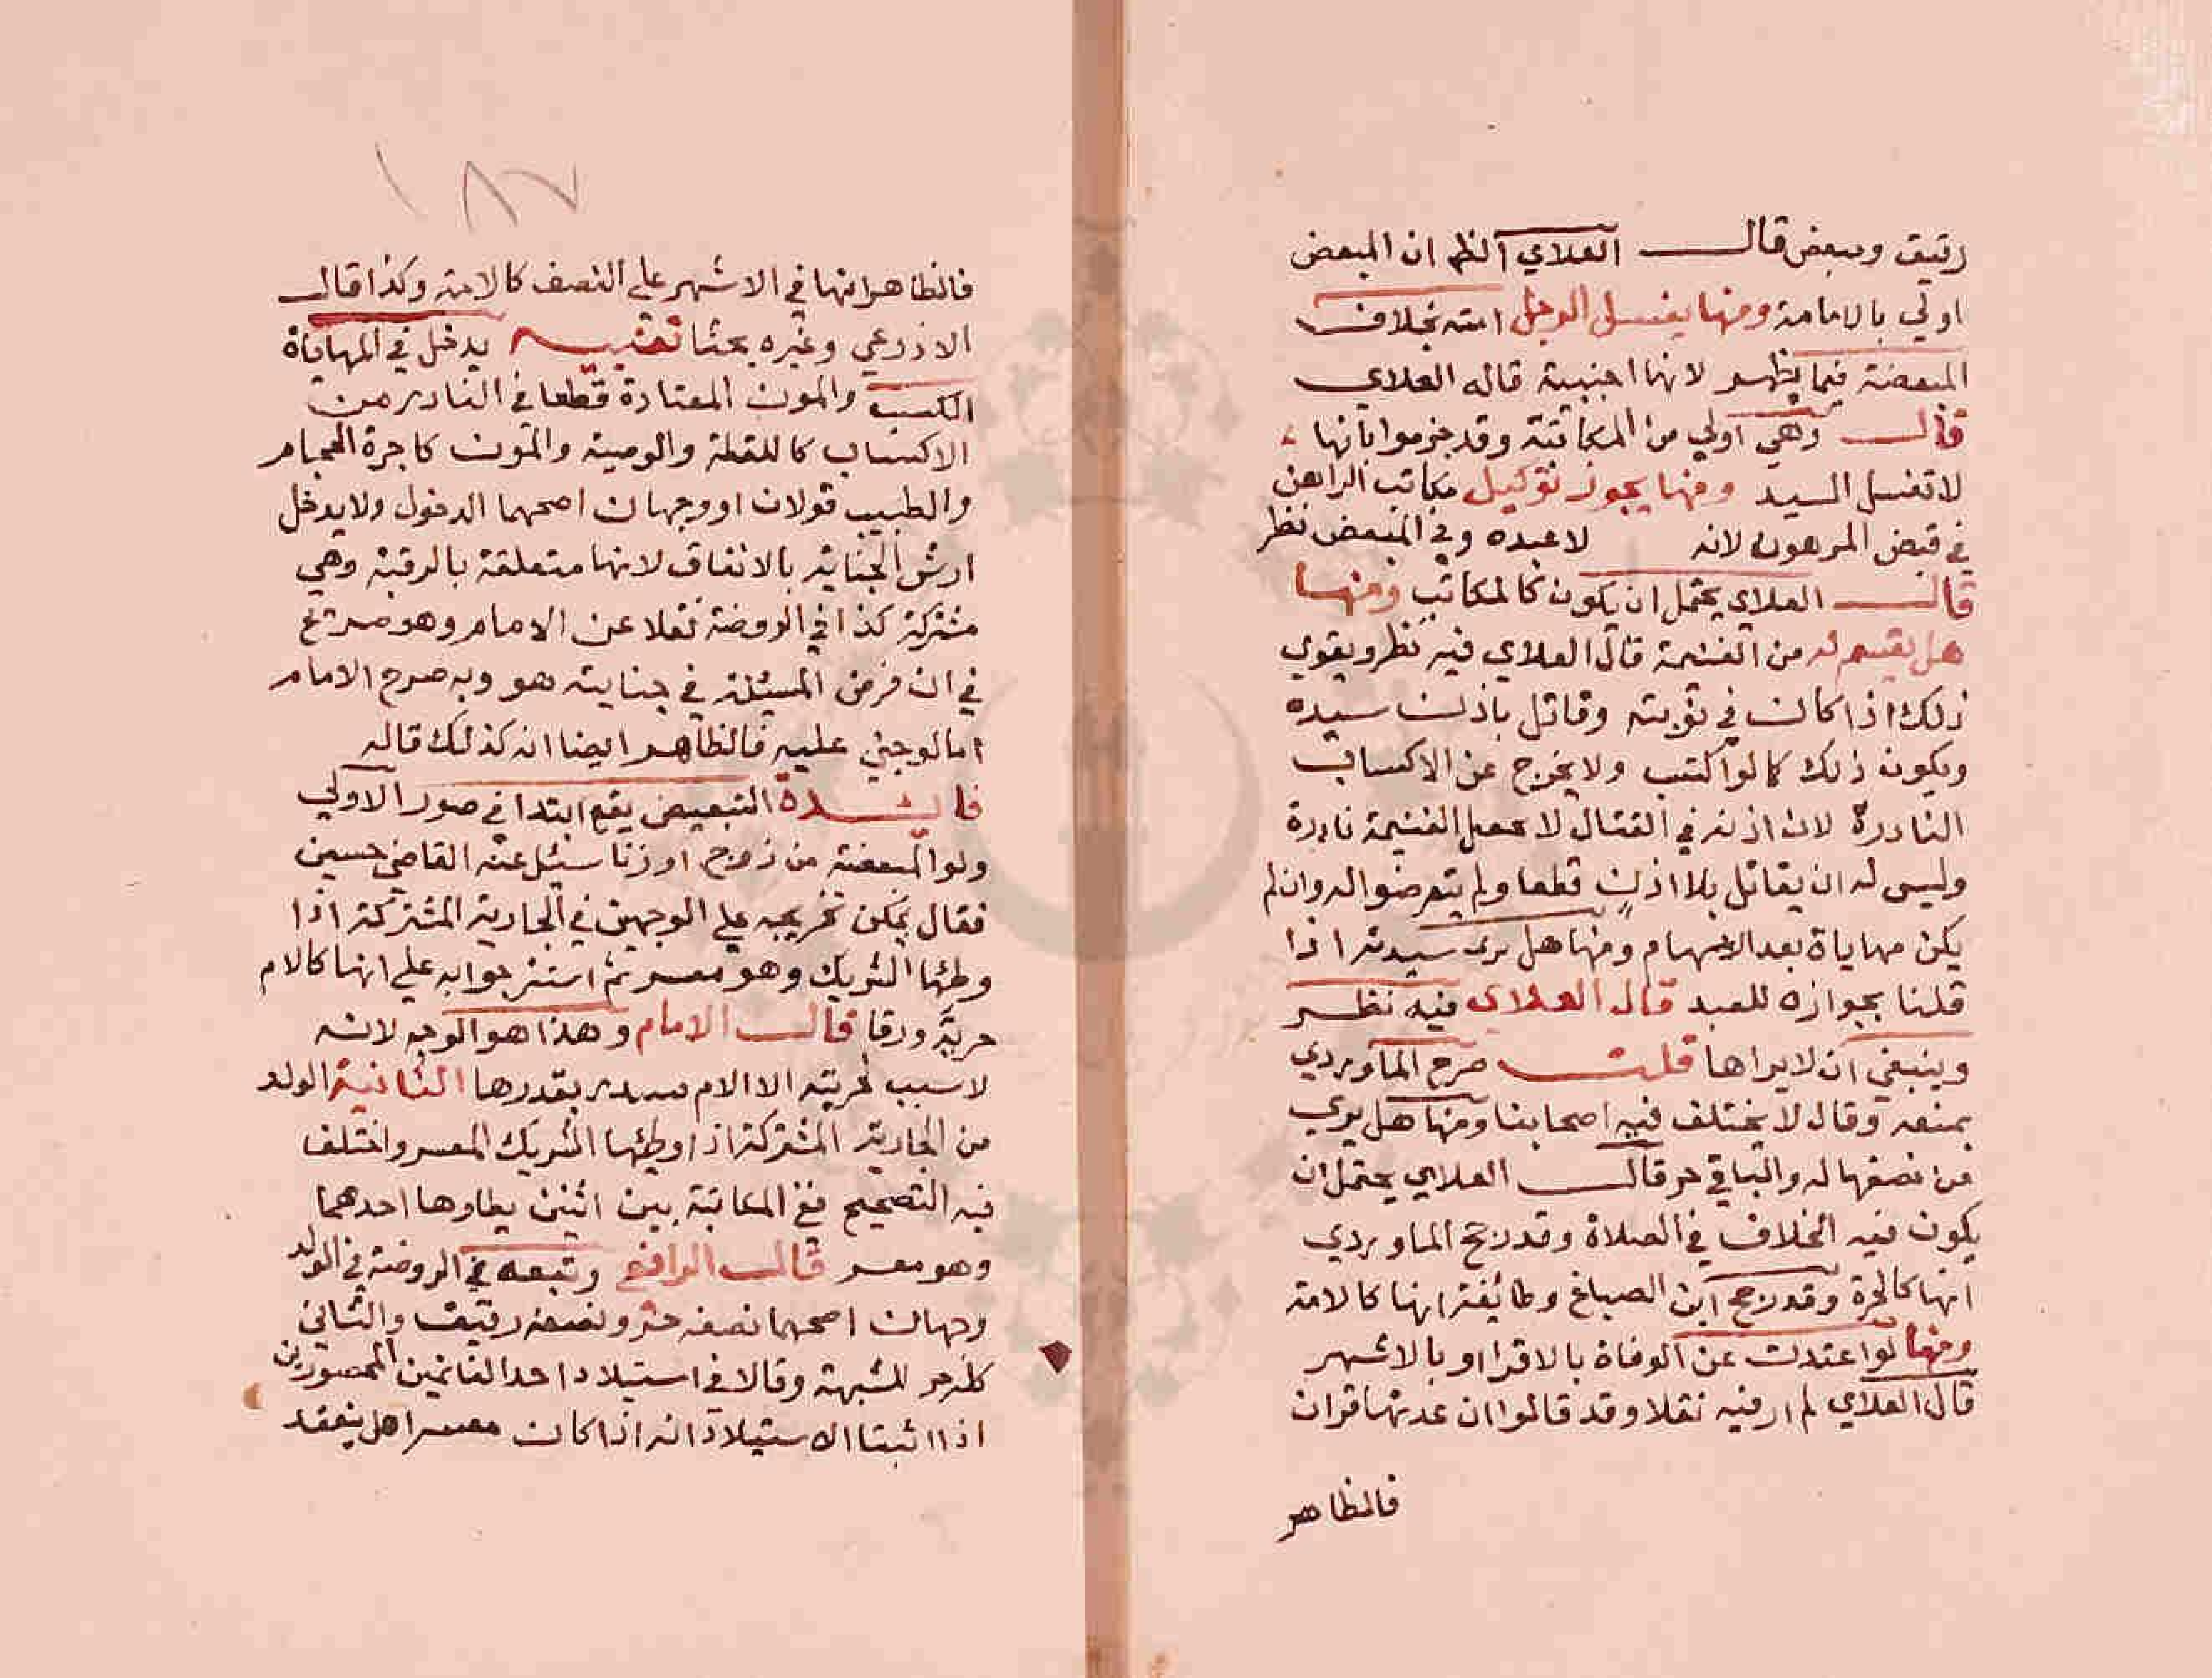 رقيق ومبعض قال العلاي الظم ان المبعض
اولي بالامامة ومنها يغسل الرجل امته بخلاف
المبعضة فيما يظهر لانها اجنبية قاله العلاي
قال وهي اولي من المكاتبة وقد جزموا بانها
لا تغسل السيد ومنها يجوز توكيل مكاتب الراهن
في قبض المرهون لانه لا عبده وفي المبعض نظر
قال العلاي يحتمل ان يكون كالمكاتب ومنها
هل يقسم له من الغنيمة قال العلاي فيه نظر ويقوي
ذلك اذا كان في نوبته وقاتل باذن سيده
ويكون ذلك كما لو اكتسب ولا يخرج عن الاكساب
النادرة لان اذنه في القتال لا يجعل الغنيمة نادرة
وليس له ان يقاتل بلا اذن قطعا ولم يتعرضوا له وان لم
يكن مهاياة بعد الابهام ومنها هل يري سيدته اذا
قلنا بجوازه للعبد قال العلاي فيه نظر
وينبغي ان لا يراها قلت صرح الماوردي
بمنعه وقال لا يختلف فيه اصحابنا ومنها هل يري
من نصفها له والباقي حر قال العلاي يحتمل ان
يكون فيه الخلاف في الصلاة وقد رجح الماوردي
انها كالحرة وقد رجح ابن الصباغ وطايفة انها كالامة
ومنها لو اعتدت عن الوفاة بالاقرا او بالاشهر
قال العلاي لم ار فيه نقلا وقد قالوا ان عدتها قران
فالظاهر
١٨٧
فالظاهر انها في الاشهر علي النصف كالامة وكذا قال
الاذرعي وغيره بحثا تنبيه يدخل في المهاياة
الكسب والمون المعتادة قطعا في النادر من
الاكتساب كاللقطة والوصية والمون كاجرة الحجام
والطبيب قولان او وجهان اصحهما الدخول ولا يدخل
ارش الجناية بالاتفاق لانها متعلقة بالرقبة وهي
مشتركة كذا في الروضة نقلا عن الامام وهو صريح
في ان فرض المسئلة في جنايته هو وبه صرح الامام
اما لو جني عليه فالظاهر ايضا انه كذلك قاله
فائدة التبعيض يقع ابتدا في صور الاولي
ولد المبعضة من زوج او زنا سئل عنه القاضي حسين
فقال يمكن تخريجه علي الوجهين في الجارية المشتركة اذا
وطئها الشريك وهو معسر ثم استقر جوابه علي انها كالام
حرية ورقا قال الامام وهذا هو الوجه لانه
لا سبب لحريته الا الام بقدرها الثانية الولد
من الجارية المشتركة اذا وطئها الشريك المعسر واختلف
فيه التصحيح ففي المكاتبة بين اثنين يطاوها احدهما
وهو معسر قال الرافعي وتبعه في الروضة في الولد
وجهان اصحهما نصفه حر ونصفه رقيق والثاني
كله حر للشبهة وقالا في استيلاد احد الغانمين المحصورين
اذا اثبتنا الاستيلاد انه اذا كان معسرا هل ينعقد